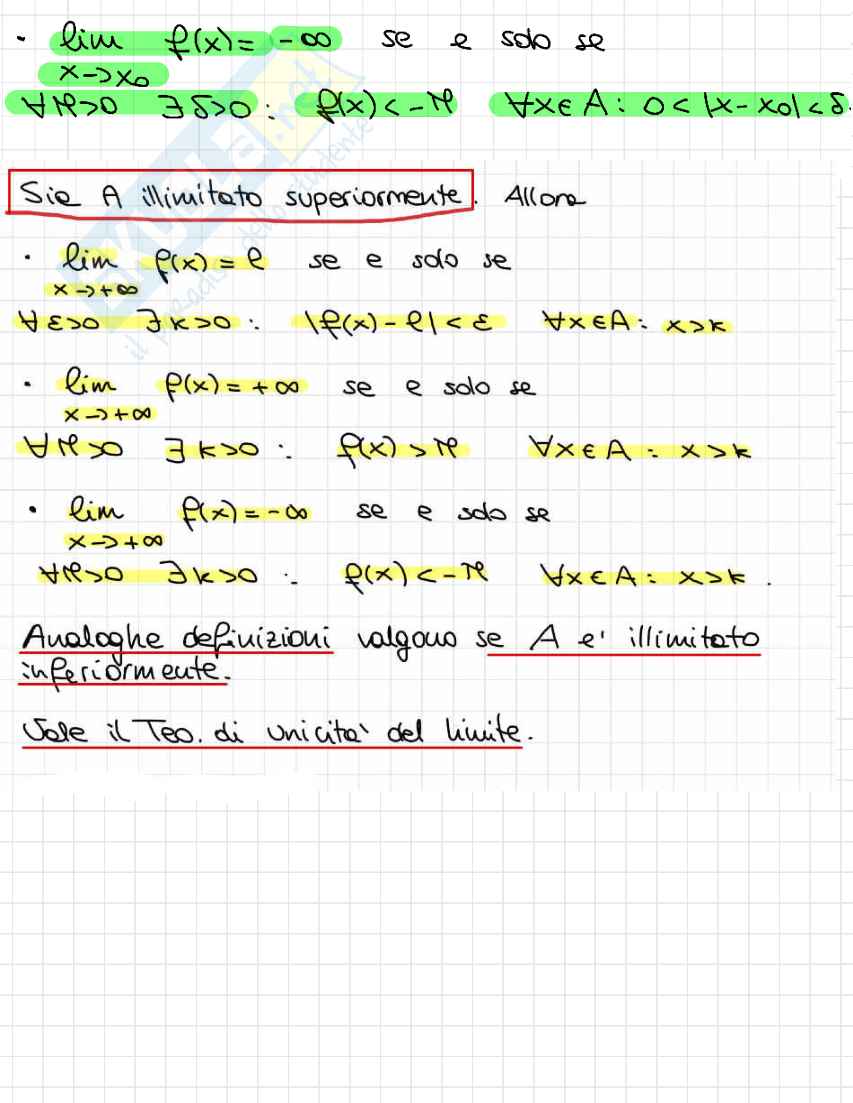 · lim f(x) = -∞ se e solo se
x→x₀
∀M>0 ∃δ>0 : f(x) < -M ∀x∈A : 0 < |x-x₀| < δ.
SKUOLA.net
il paradiso dello studente
Sia A illimitato superiormente. Allora
· lim f(x) = ℓ se e solo se
x→+∞
∀ε>0 ∃k>0 : |f(x)-ℓ| < ε ∀x∈A : x>k
· lim f(x) = +∞ se e solo se
x→+∞
∀M>0 ∃k>0 : f(x) > M ∀x∈A : x>k
· lim f(x) = -∞ se e solo se
x→+∞
∀M>0 ∃k>0 : f(x) < -M ∀x∈A : x>k .
Analoghe definizioni valgono se A e' illimitato
inferiormente.
Vale il Teo. di unicita' del limite.